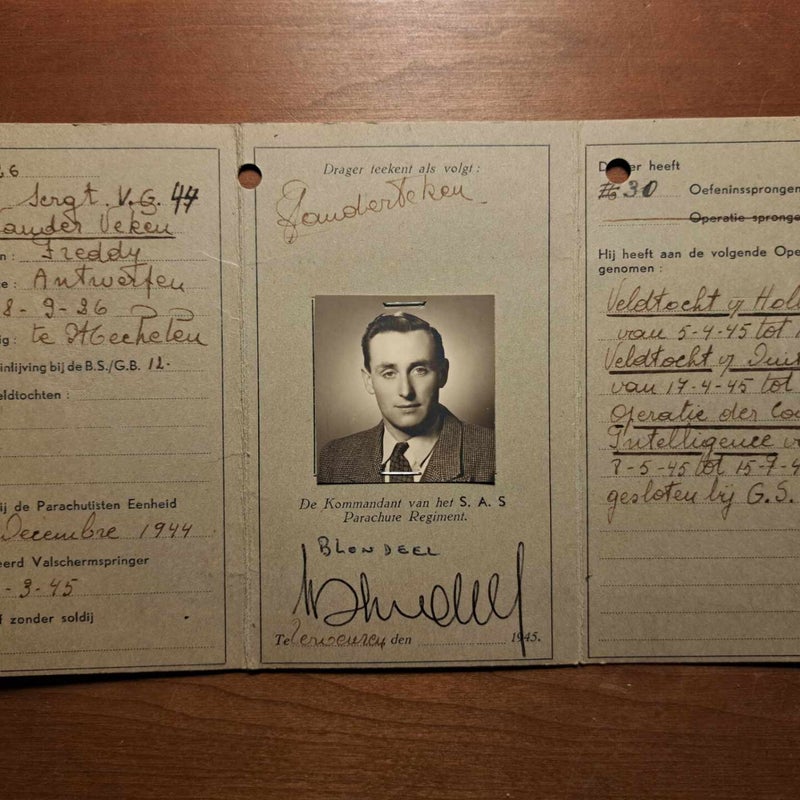 26
Sergt. V.G. 44
ander Veken
n : Freddy
e : Antwerpen
8-9-26
ig : te Mechelen
inlijving bij de B.S./G.B. 12.
eldtochten :
ij de Parachutisten Eenheid
Decembre 1944
eerd Valschermspringer
-3-45
f zonder soldij
Drager teekent als volgt :
VanderVeken
De Kommandant van het S. A. S
Parachute Regiment.
BLONDEEL
Blondeel
Te Tervueren den 1945.
D er heeft
30 Oefeninssprongen
Operatie spronge
Hij heeft aan de volgende Ope
genomen :
Veldtocht Hol
van 5-4-45 tot 1
Veldtocht Duit
van 17-4-45 tot
Operatie der Cou
Intelligence v
7-5-45 tot 15-7-4
gesloten bij G.S.